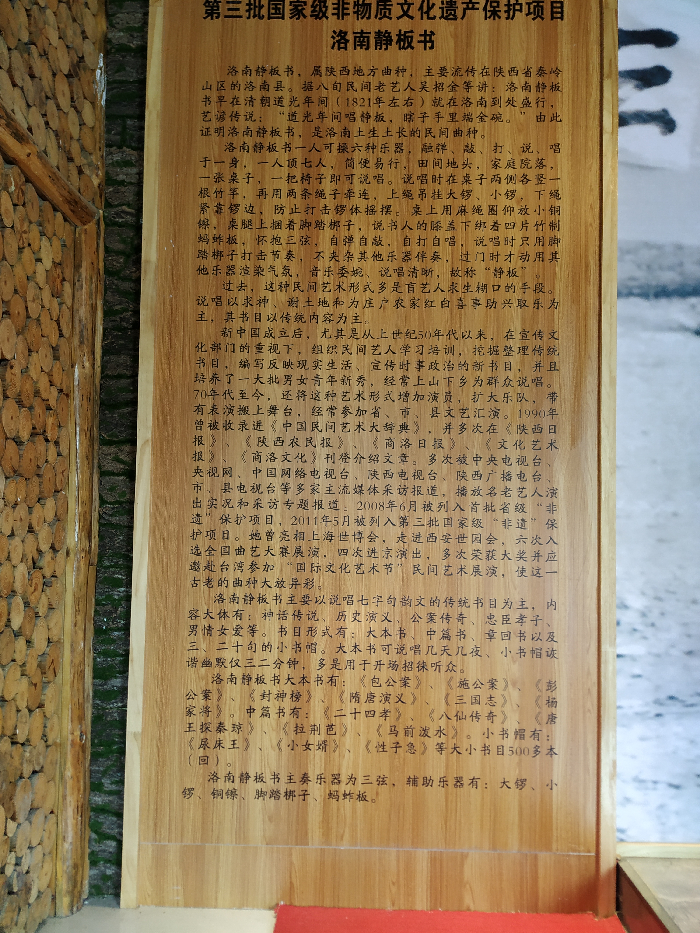 第三批国家级非物质文化遗产保护项目
洛南静板书
洛南静板书，属陕西地方曲种，主要流传在陕西省秦岭
山区的洛南县。据八旬民间老艺人吴招金等讲：洛南静板
书早在清朝道光年间（1821年左右）就在洛南到处盛行，
艺谚传说：“道光年间唱静板，瞎子手里端金碗。”由此
证明洛南静板书，是洛南土生土长的民间曲种。
洛南静板书一人可操六种乐器，融弹、敲、打、说、唱
于一身，一人顶七人，简便易行，田间地头，家庭院落，
一张桌子，一把椅子即可说唱。说唱时在桌子两侧各竖一
根竹竿，再用两条绳子牵连，上绳吊挂大锣、小锣，下绳
紧靠锣边，防止打击锣体摇摆；桌上用麻绳圈仰放小铜
镲，桌腿上捆着脚踏梆子，说书人的膝盖下绑着四片竹制
蚂蚱板，怀抱三弦，自弹自敲，自打自唱，说唱时只用脚
踏梆子打击节奏，不夹杂其他乐器伴奏，过门时才动用其
他乐器渲染气氛，音乐委婉、说唱清晰，故称“静板”。
过去，这种民间艺术形式多是盲艺人求生糊口的手段。
说唱以求神、谢土地和为庄户农家红白喜事助兴取乐为
主，其书目以传统内容为主。
新中国成立后，尤其是从上世纪50年代以来，在宣传文
化部门的重视下，组织民间艺人学习培训，挖掘整理传统
书目，编写反映现实生活、宣传时事政治的新书目，并且
培养了一大批男女青年新秀，经常上山下乡为群众说唱。
70年代至今，还将这种艺术形式增加演员，扩大乐队，带
有表演搬上舞台，经常参加省、市、县文艺汇演。1990年
曾被收录进《中国民间艺术大辞典》，并多次在《陕西日
报》、《陕西农民报》、《商洛日报》、《文化艺术
报》、《商洛文化》刊登介绍文章。多次被中央电视台、
央视网、中国网络电视台、陕西电视台、陕西广播电台、
市、县电视台等多家主流媒体采访报道，播放名老艺人演
出实况和采访专题报道。2008年6月被列入首批省级“非
遗”保护项目，2011年5月被列入第三批国家级“非遗”保
护项目。她曾亮相上海世博会，走进西安世园会，六次入
选全国曲艺大赛展演，四次进京演出，多次荣获大奖并应
邀赴台湾参加“国际文化艺术节”民间艺术展演，使这一
古老的曲种大放异彩。
洛南静板书主要以说唱七字句韵文的传统书目为主，内
容大体有：神话传说、历史演义、公案传奇、忠臣孝子、
男情女爱等。书目形式有：大本书、中篇书、章回书以及
三、二十句的小书帽。大本书可说唱几天几夜、小书帽诙
谐幽默仅三二分钟，多是用于开场招徕听众。
洛南静板书大本书有：《包公案》、《施公案》、《彭
公案》、《封神榜》、《隋唐演义》、《三国志》、《杨
家将》。中篇书有：《二十四孝》、《八仙传奇》、《唐
王探秦琼》、《拉荆芭》、《马前泼水》。小书帽有：
《尿床王》、《小女婿》、《性子急》等大小书目500多本
（回）。
洛南静板书主奏乐器为三弦，辅助乐器有：大锣、小
锣、铜镲、脚踏梆子、蚂蚱板。